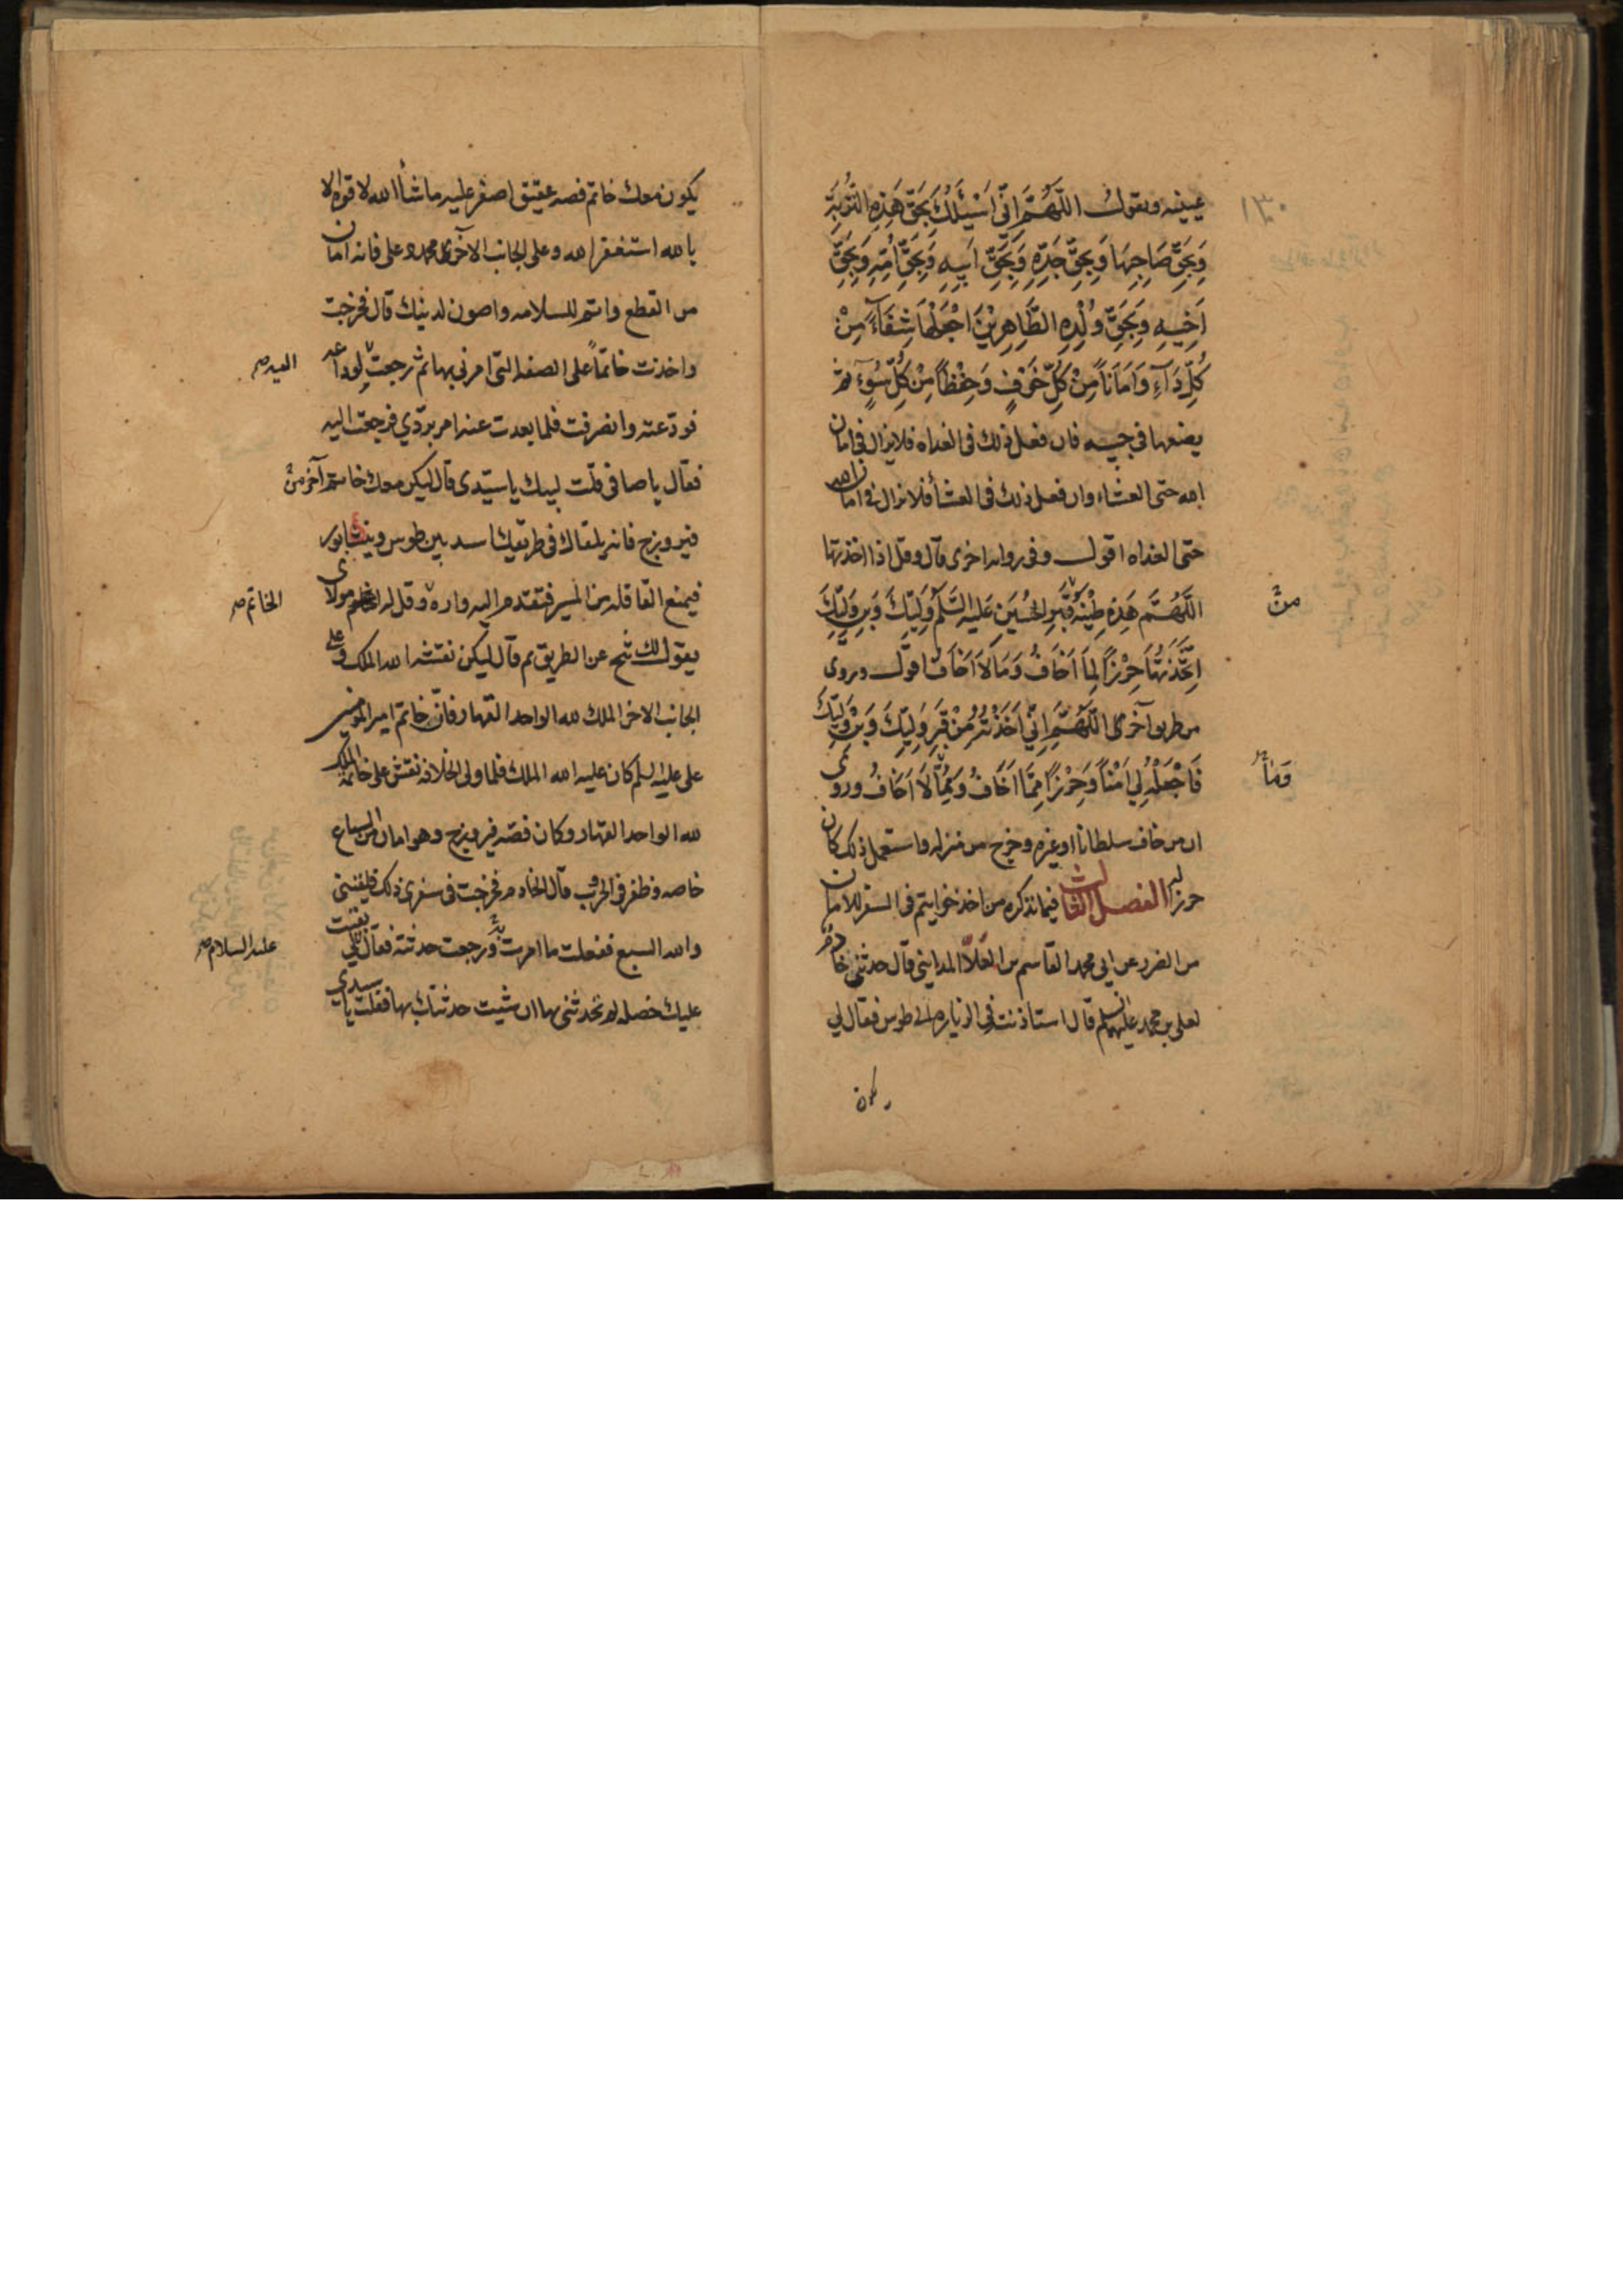 عينيه ويقول اللَّهُمَّ اِنّي اَسْئَلُكَ بِحَقِّ هَذِهِ التُّرْبَةِ
وَبِحَقِّ صَاحِبِهَا وَبِحَقِّ جَدِّهِ وَبِحَقِّ اَبِيهِ وَبِحَقِّ اُمِّهِ وَبِحَقِّ
اَخِيهِ وَبِحَقِّ وُلْدِهِ الطَّاهِرِيْنَ اجْعَلْهَا شِفَآءً مِنْ
كُلِّ دَآءٍ وَاَمَاناً مِنْ كُلِّ خَوْفٍ وَحِفْظاً مِنْ كُلِّ سُوٓءٍ ثم
يضعها في جيبه فان فعل ذلك في الغداه فلا يزال في امان
الله حتى العشاء وان فعل ذلك في العشأ فلا يزال في امان الله
حتى الغداه اقول وفي روايه اخرى قال وقل اذا اخذتها
اللَّهُمَّ هَذِهِ طِيْنَةُ قَبْرِ الحُسَيْنِ عَلَيْهِ السَّلَمُ وَلِيِّكَ وَابْنِ وَلِيِّكَ
من
اِتَّخَذْتُهَا حِرْزاً لِمَا اَخَافُ وَمَا لَا اَخَافُ اقول وروى
من طريق آخر اللَّهُمَّ اِنِّي اَخَذْتُهُ مِنْ قَبْرِ وَلِيِّكَ وَابْنِ وَلِيِّكَ
فَاجْعَلْهُ لِي اَمْنًا وَحِرْزاً مِمَّا اَخَافُ وَمِمَّا لَا اَخَافُ وروى
وما
ان من خاف سلطانا او غيره وخرج من منزله واستعمل ذلك كان
حرزا له الفصل الثالث فيما نذكره من اخذ خواتيم في السفر للامان
من الضرر عن ابي محمد القاسم بن العَلَا المدايني قال حدثني خادم
لعلى بن محمد عليهما السلم قال استاذنته في الزياره الى طوس فقال لي
يكون
يكون معك خاتم فصه عقيق اصفر عليه ما شأ الله لا قوه الا
بالله استغفر الله وعلى الجانب الآخر محمد وعلى فانه امان
من القطع واتم للسلامه واصون لدينك قال فخرجت
واخذت خاتماً على الصفه التي امرني بها ثم رجعت لوداعه
اليه صح
فودعته وانصرفت فلما بعدت عنه امر بردّي فرجعت اليه
فقال يا صافي قلت لبيك يا سيّدى قال ليكن معك خاتم آخر من
فيروزج فانه يلقاك في طريقك اسد بين طوس ونيشابور
فيمنع القافله من المسير فتقدم اليه واره وقل له مولاى
الخاتم صح
يقول لك تنح عن الطريق ثم قال ليكن نقشه الله الملك وعلى
الجانب الاخر الملك لله الواحد القهار فان خاتم امير المومنين
على عليه السلم كان عليه الله الملك فلما ولى الخلافه نقش على خاتمه الملك
لله الواحد القهار وكان فصه فيروزج وهو امان من السباع
خاصه وظفر في الحروب قال الخادم فخرجت في سفرى ذلك فلقيني
والله السبع ففعلت ما امرت به ورجعت حدثته فقال لي بقيت
عليه السلام صح
عليك خصله لم تحدثني بها ان شيت حدثتك بها فقلت يا سيدي